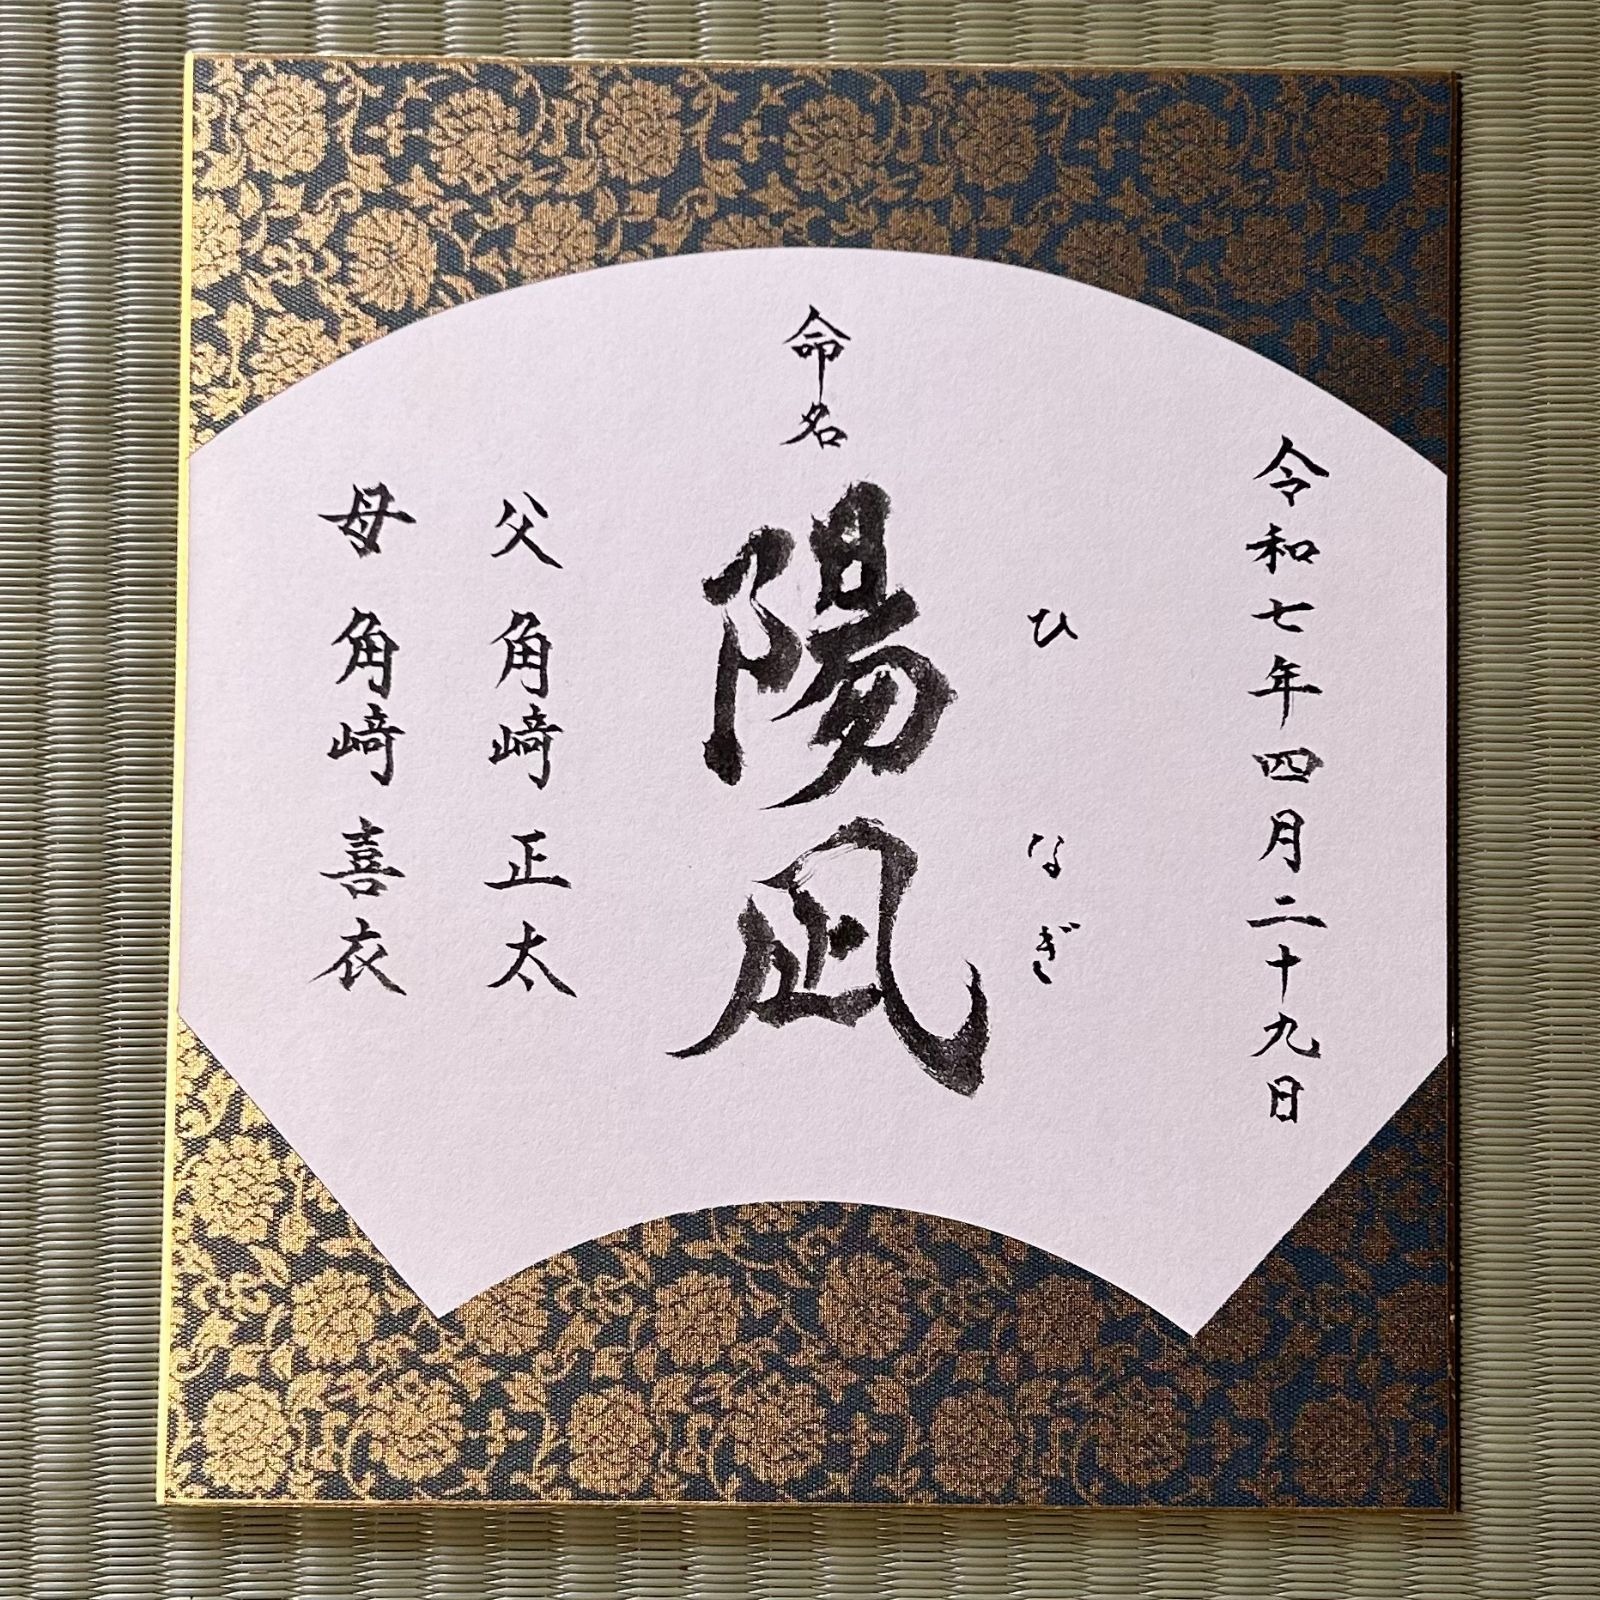 令和七年四月二十九日
ひなぎ
命名
陽凪
父 角﨑正太
母 角﨑喜衣